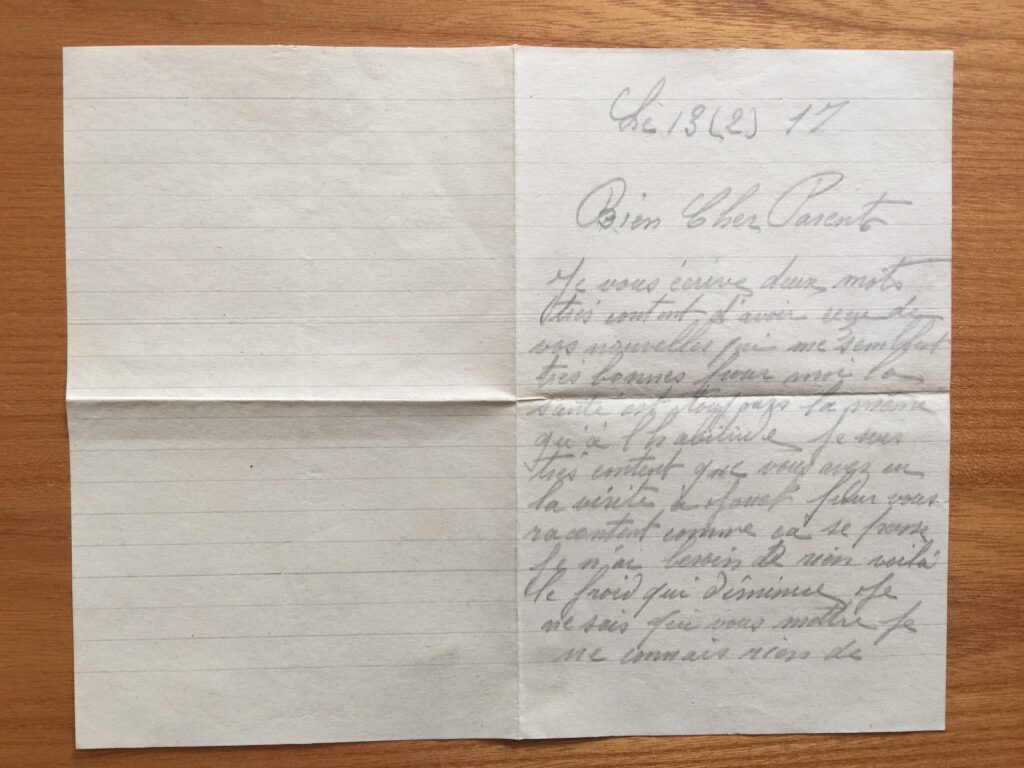 Le 13(2) 17
Bien Cher Parent
Je vous écrive deux mots
très content d'avoir reçu de
vos nouvelles qui me semblent
très bonnes pour moi la
santé est toujours la meme
qu'à l'habitude Je suis
très content que vous avez eu
la visite à pour vous
racontent comme ca se passe
Je n'ai besoin de rien voilà
le froid qui diminue Je
ne sais qui vous mettre Je
ne connais rien de